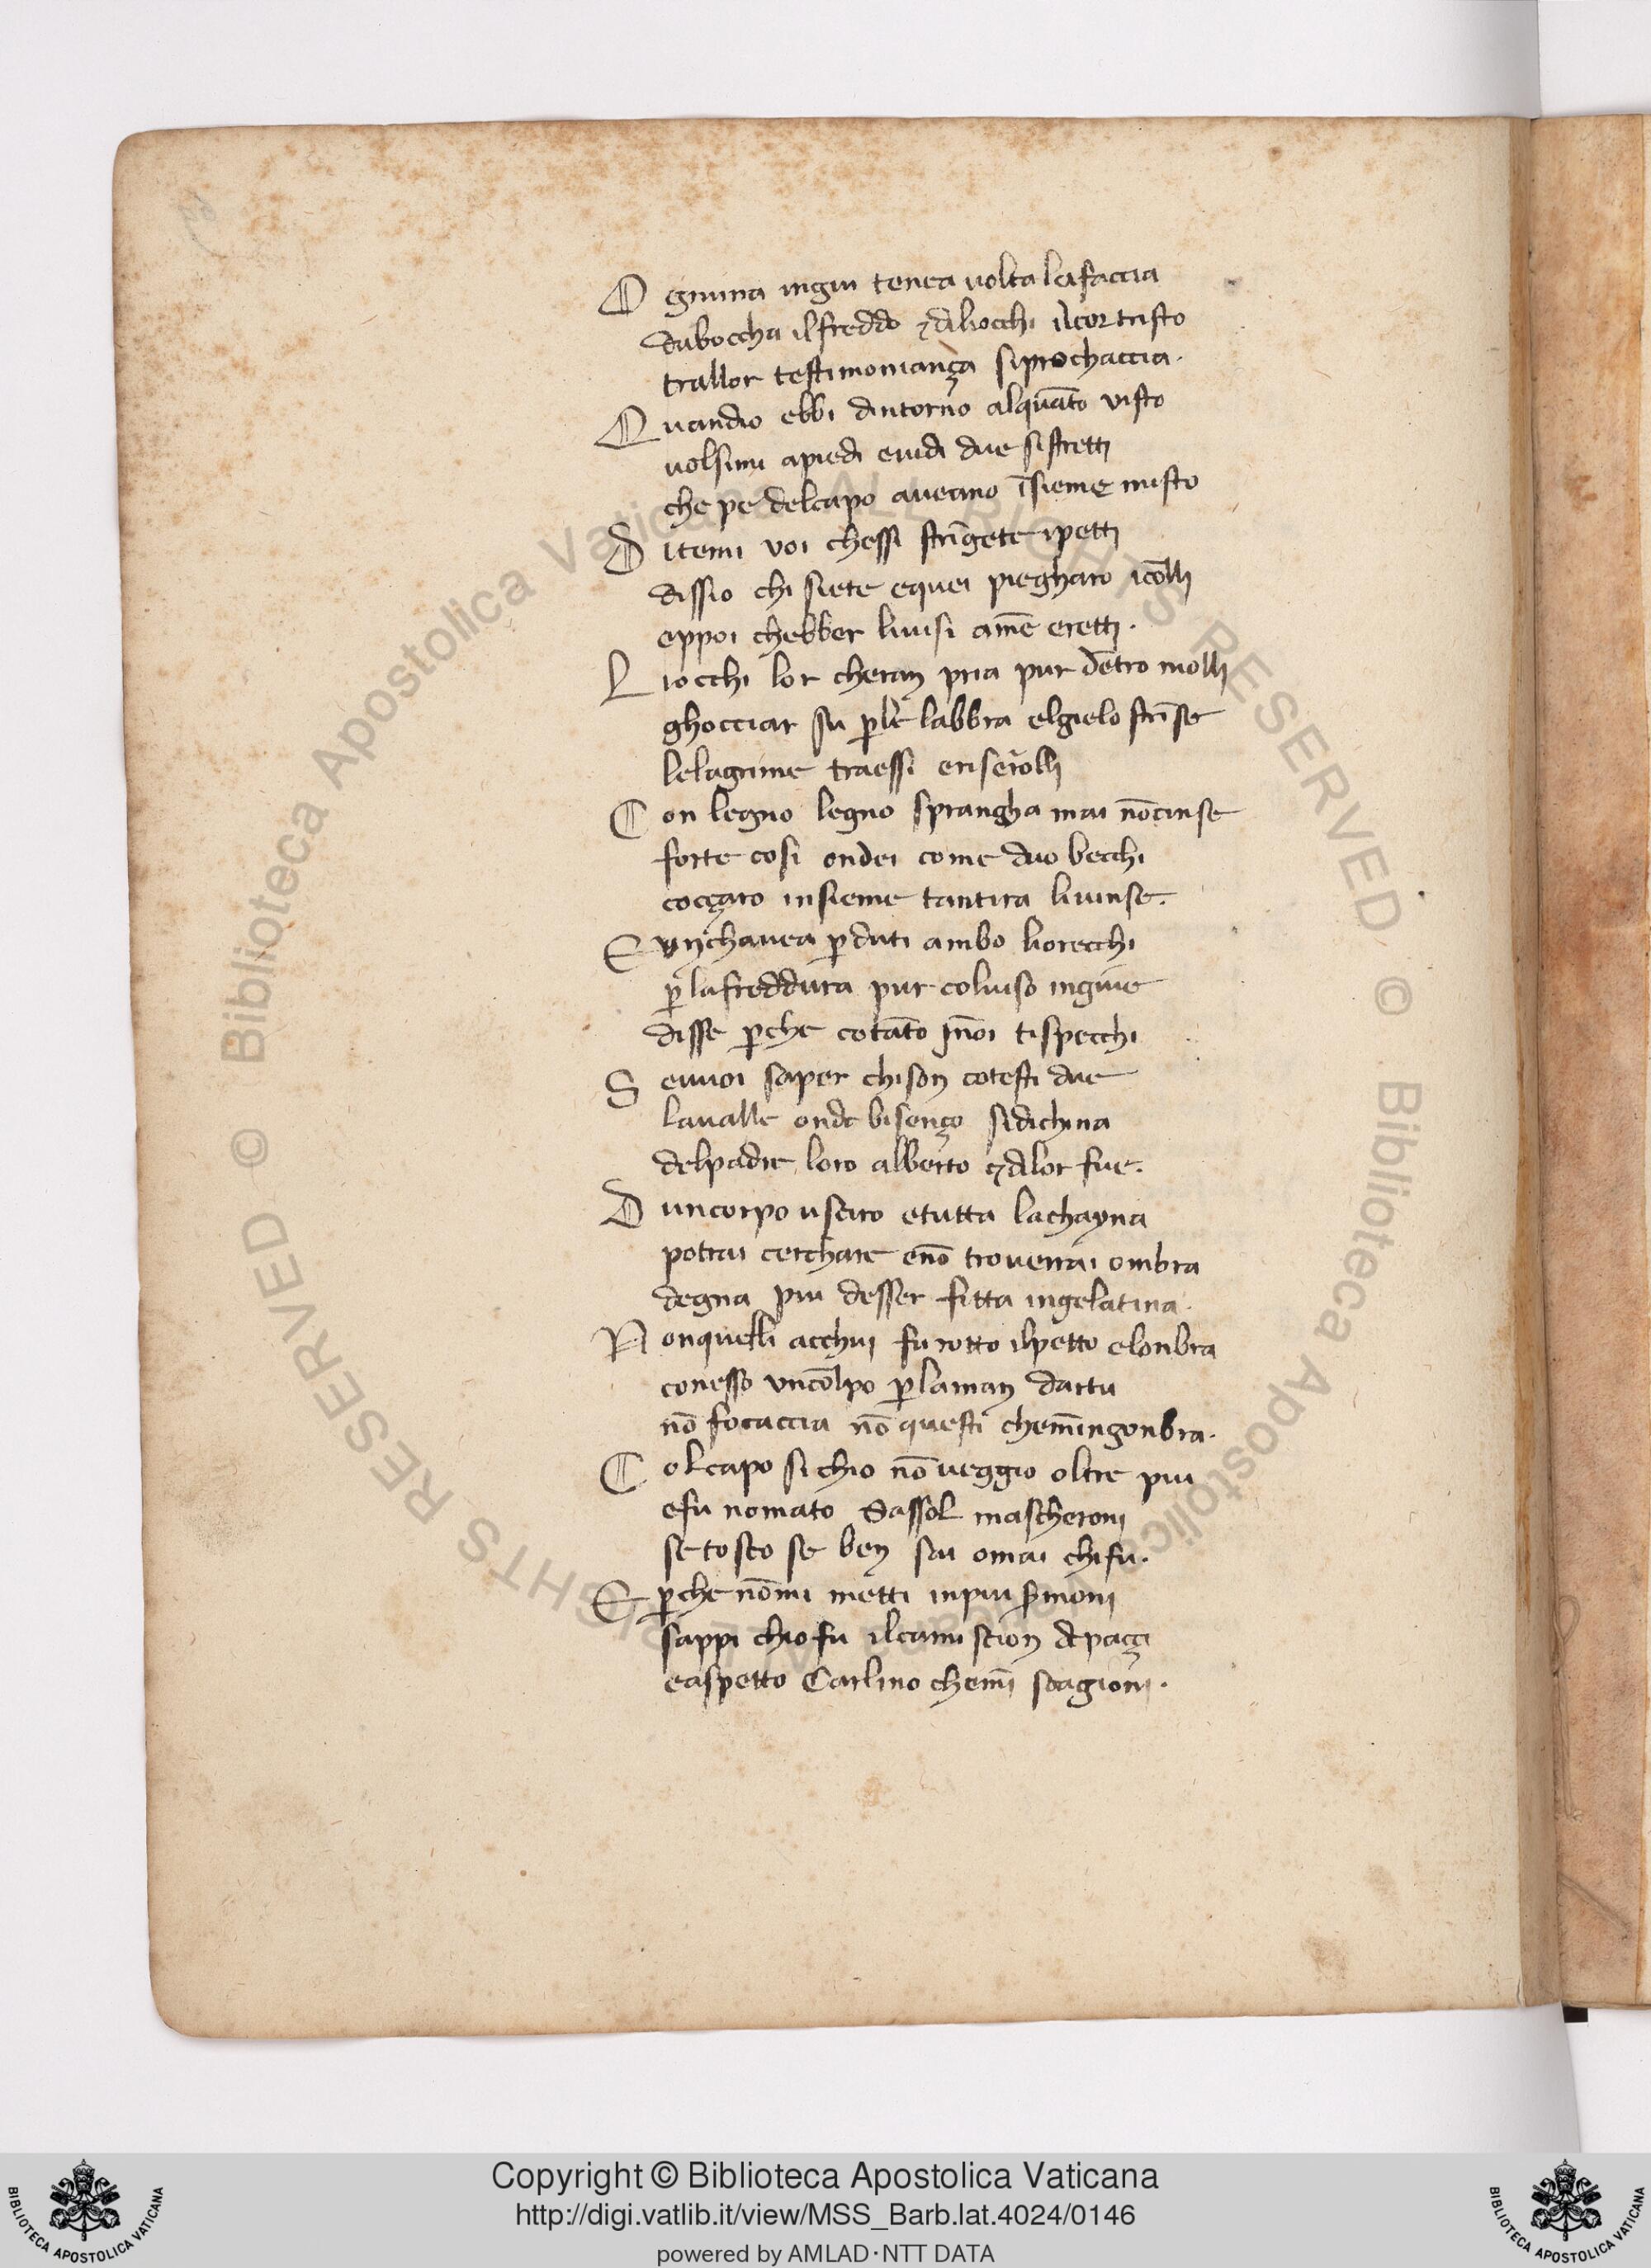 O gnuna ingiu tenea uolta lafaccia
daboccha ilfreddo ⁊daliocchi ilcor tristo
trallor testimoniança siprochaccia.
Q uandio ebbi dintorno alquāto visto
uolsimi apiedi euidi due sistretti
che pe delcapo aueano īsieme misto
D itemi voi chessi strīgete ipetti
dissio chi siete equei piegharo icolli
eppoi chebber liuisi amē eretti.
L iocchi lor cheran pria pur dētro molli
ghocciar su ꝑle labbra elgielo strīse
lelagrime traessi eriserolli
C on legno legno sprangha mai nōcinse
forte cosi ondei come duo becchi
coççaro insieme tantira liuinse.
E vnchauea ꝑduti ambo liorecchi
ꝑ lafreddura pur coluiso ingiue
disse ꝑche cotāto īnoi tispecchi
S euuoi saper chison cotesti due
laualle onde bisenço sidichina
delpadre loro alberto ⁊dilor fue.
D uncorpo usciro etutta lachayna
potrai cerchare enō trouerrai ombra
degna piu desser fitta ingelatina.
N onquelli acchui fu rotto ilpetto elonbra
conesso vncolpo ꝑlaman dartu
nō focaccia nō questi chemīngonbra.
C olcapo si chio nō ueggio oltre piu
efu nomato Sassol mascheroni
se tosco se ben sai omai chifu.
E ꝑche nōmi metti inpiu sꝑmoni
sappi chiofu ilcamiscion de paççi
easpetto Carlino chemī scagioni.
© Biblioteca Apostolica Vaticana ALL RIGHTS RESERVED © Biblioteca Apostolica Vaticana ALL RIGHTS RESERVED
Copyright © Biblioteca Apostolica Vaticana
http://digi.vatlib.it/view/MSS_Barb.lat.4024/0146
powered by AMLAD·NTT DATA
BIBLIOTECA APOSTOLICA VATICANA
BIBLIOTECA APOSTOLICA VATICANA